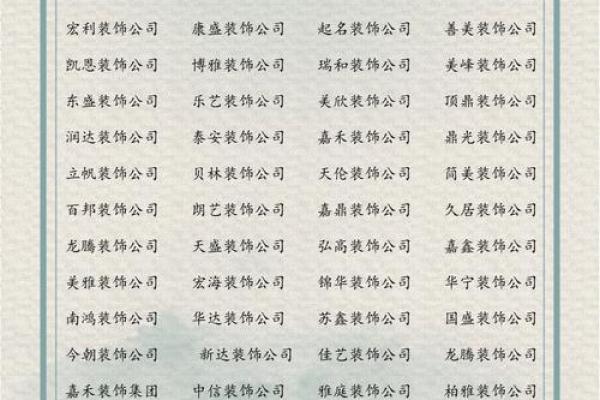 宏利装饰公司 康盛装饰公司 起名装饰公司 善美装饰公司
凯恩装饰公司 博雅装饰公司 瑞和装饰公司 美峰装饰公司
东盛装饰公司 乐艺装饰公司 美欣装饰公司 顶鼎装饰公司
润达装饰公司 泰安装饰公司 嘉禾装饰公司 鼎光装饰公司
立帆装饰公司 贝林装饰公司 天伦装饰公司 简美装饰公司
百邦装饰公司 朗艺装饰公司 嘉鼎装饰公司 久居装饰公司
龙腾装饰公司 天盛装饰公司 弘高装饰公司 嘉鑫装饰公司
美雅装饰公司 宏海装饰公司 锦华装饰公司 华宁装饰公司
南鸿装饰公司 华达装饰公司 苏鑫装饰公司 国盛装饰公司
今朝装饰公司 新达装饰公司 佳艺装饰公司 龙腾装饰公司
嘉禾装饰集团 中信装饰公司 雅庭装饰公司 柏雅装饰公司